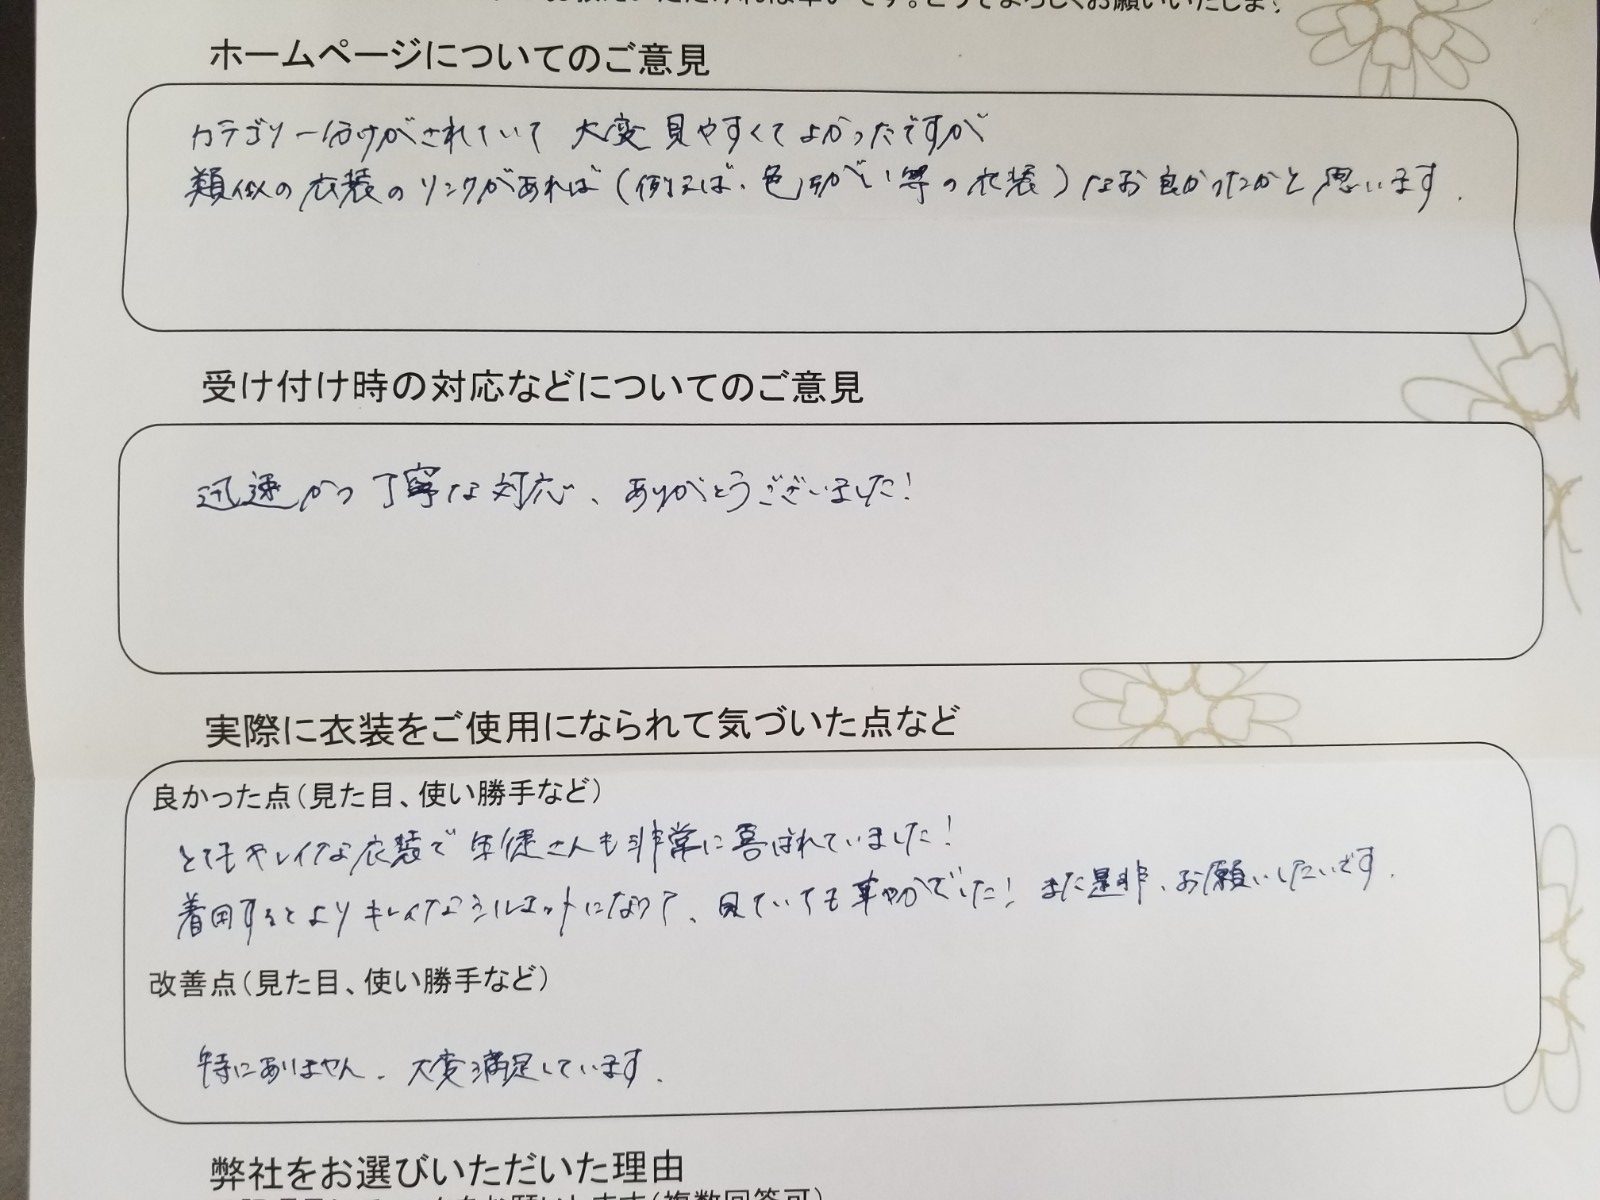 ければ幸いです。どうぞよろしくお願いいたしま
ホームページについてのご意見
カテゴリー分けがされていて 大変見やすくてよかったですが
類似の衣装のリンクがあれば(例えば、色ちがい等の衣装)なお良かったかと思います.
受け付け時の対応などについてのご意見
迅速かつ丁寧な対応、ありがとうございました!
実際に衣装をご使用になられて気づいた点など
良かった点(見た目、使い勝手など)
とてもキレイな衣装で生徒さんも非常に喜ばれていました!
着用するとよりキレイなシルエットになって、見ていても華やかでした! また是非、お願いしたいです.
改善点(見た目、使い勝手など)
特にありません. 大変満足しています.
弊社をお選びいただいた理由
お願いします(複数回答可)